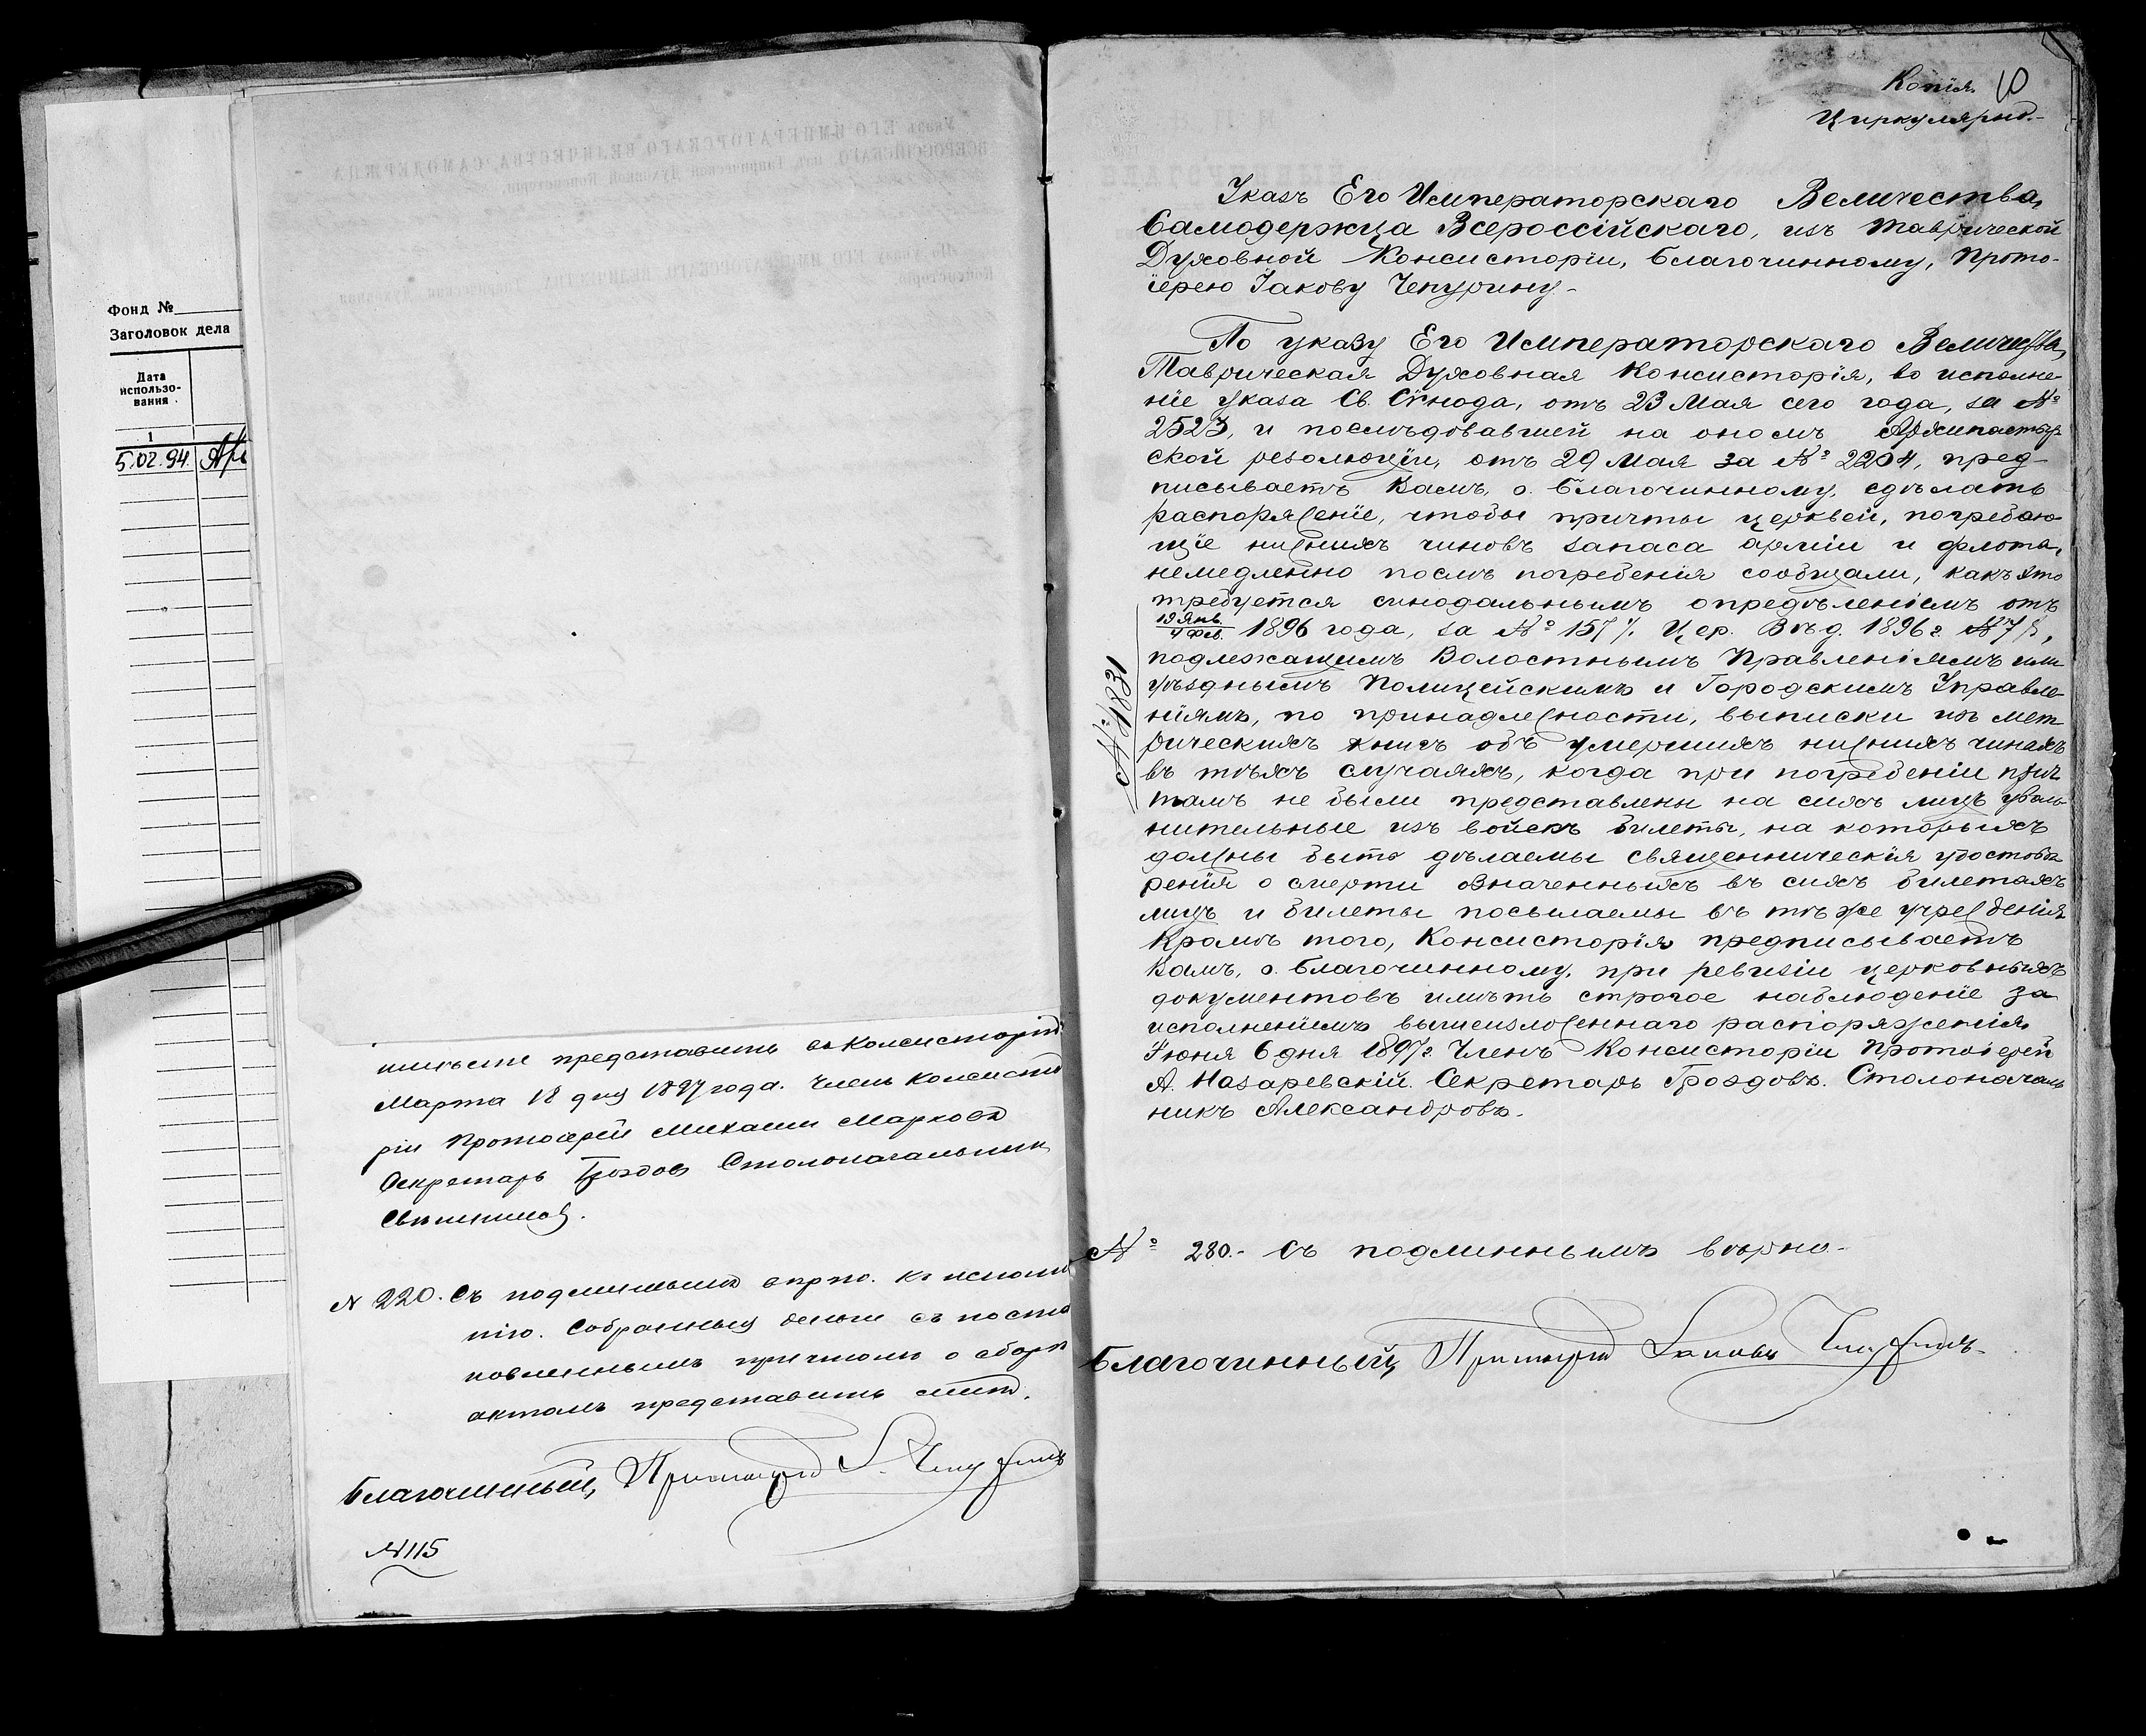 Фонд №
Заголовок дела
Дата
использо-
вания
1
5.02.94.
представить въ Консисторію
Марта 18 дня 1897 года. Членъ Консисто
ріи Протоіерей Михаилъ Марковъ
Секретарь Гроздов Столоначальник
№ 220. Съ подлиннымъ вѣрно. Къ исполне
нію. Собранныя деньги съ поста
новленнымъ причтомъ о сборѣ
актомъ представить мнѣ.
Благочинный, Протоіерей Я. Чепуринъ
№ 115
Копія. 10
Циркулярно.-
Указъ Его Императорскаго Величества,
Самодержца Всероссійскаго, изъ Таврической
Духовной Консисторіи, Благочинному, Прото-
іерею Іакову Чепурину-
По указу Его Императорскаго Величества,
Таврическая Духовная Консисторія, во исполне-
ніе указа Св. Сѵнода, отъ 23 Мая сего года, за №
2523, и послѣдовавшей на ономъ Архипастыр
ской резолюціи, отъ 29 Мая за № 2204, пред-
писываетъ Вамъ, о. Благочинному, сдѣлать
распоряженіе, чтобы причты церквей, погребаю-
щіе нижнихъ чиновъ запаса арміи и флота,
немедленно послѣ погребенія сообщали, какъ это
требуется синодальнымъ опредѣленіемъ отъ
19 Янв.
4 Фев. 1896 года, за № 157 /. Цер. Вѣд. 1896 г. № 7/,
подлежащимъ Волостнымъ Правленіямъ или
уѣзднымъ Полицейскимъ и Городскимъ Управле-
ніямъ, по принадлежности, выписки изъ мет
рическихъ книгъ объ умершихъ нижнихъ чинахъ
въ тѣхъ случаяхъ, когда при погребеніи прич
тамъ не были представлены на сихъ лицъ уволь-
нительные изъ войскъ билеты, на которыхъ
должны быть дѣлаемы священническія удостовѣ
ренія о смерти означенныхъ въ сихъ билетахъ
лицъ и билеты посылаемы въ тѣ же учрежденія
Кромѣ того, Консисторія предписываетъ
Вамъ, о. Благочинному, при ревизіи церковныхъ
документовъ имѣть строгое наблюденіе за
исполненіемъ вышеизложеннаго распоряженія
Іюня 6 дня 1897 г. Членъ Консисторіи Протоіерей
А. Назаревскій. Секретарь Гроздовъ. Столоначаль
никъ Александровъ.
№ 1831
№ 280.- Съ подлиннымъ вѣрно-
Благочинный, Протоіерей Іаковъ Чепуринъ-